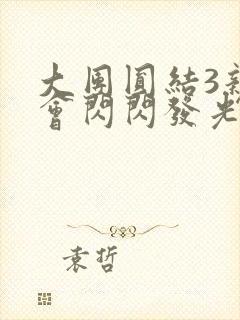 大團圓結3新
會閃閃發光
袁哲